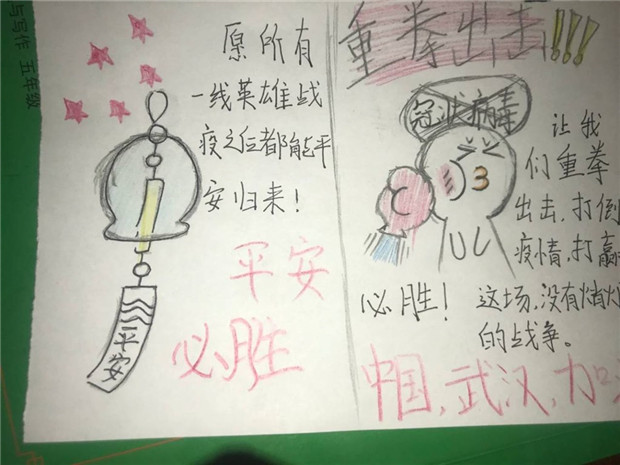 与写作 五年级
愿所有
一线英雄战
疫之位都能平
安归来！
平安
必胜
平安
重拳出击!!!
冠状病毒
让我
们重拳
出击，打倒
疫情，打赢
必胜！
这场，没有
的战争。
中国，武汉，加